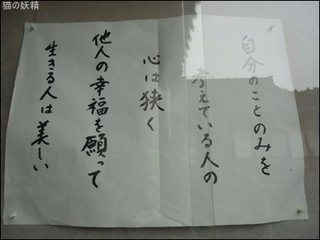 猫の妖精
自分のことのみを
考えている人の
心は狭く
他人の幸福を願って
生きる人は美しい